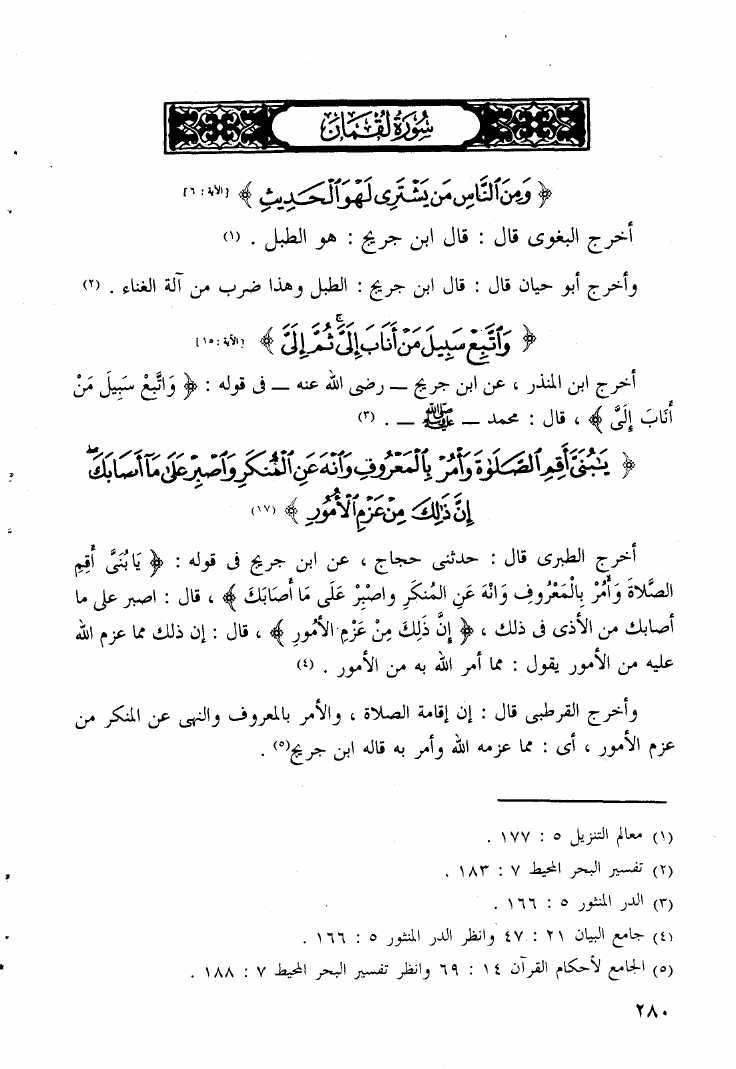 سُورَةُ لُقْمَان
﴿ وَمِنَ ٱلنَّاسِ مَن يَشْتَرِى لَهْوَ ٱلْحَدِيثِ ﴾ [الآية : ٦]
أخرج البغوى قال : قال ابن جريج : هو الطبل . (١)
وأخرج أبو حيان قال : قال ابن جريج : الطبل وهذا ضرب من آلة الغناء . (٢)
﴿ وَٱتَّبِعْ سَبِيلَ مَنْ أَنَابَ إِلَىَّ ۚ ثُمَّ إِلَىَّ ﴾ [الآية : ١٥]
أخرج ابن المنذر ، عن ابن جريج ــ رضى الله عنه ــ فى قوله : ﴿ وَاتَّبِعْ سَبِيلَ مَنْ
أَنَابَ إِلَىَّ ﴾ ، قال : محمد ــ ﷺ ــ . (٣)
﴿ يَٰبُنَىَّ أَقِمِ ٱلصَّلَوٰةَ وَأْمُرْ بِٱلْمَعْرُوفِ وَٱنْهَ عَنِ ٱلْمُنكَرِ وَٱصْبِرْ عَلَىٰ مَآ أَصَابَكَ ۖ
إِنَّ ذَٰلِكَ مِنْ عَزْمِ ٱلْأُمُورِ ﴾ (١٧)
أخرج الطبرى قال : حدثنى حجاج ، عن ابن جريج فى قوله : ﴿ يَا بُنَىَّ أَقِمِ
الصَّلاةَ وَأْمُرْ بِالْمَعْرُوفِ وَانْهَ عَنِ المُنكَرِ واصْبِرْ عَلَى مَا أَصَابَكَ ﴾ ، قال : اصبر على ما
أصابك من الأذى فى ذلك ، ﴿ إِنَّ ذَلِكَ مِنْ عَزْمِ الأُمُورِ ﴾ ، قال : إن ذلك مما عزم الله
عليه من الأمور يقول : مما أمر الله به من الأمور . (٤)
وأخرج القرطبى قال : إن إقامة الصلاة ، والأمر بالمعروف والنهى عن المنكر من
عزم الأمور ، أى : مما عزمه الله وأمر به قاله ابن جريج(٥) .
(١) معالم التنزيل ٥ : ١٧٧ .
(٢) تفسير البحر المحيط ٧ : ١٨٣ .
(٣) الدر المنثور ٥ : ١٦٦ .
(٤) جامع البيان ٢١ : ٤٧ وانظر الدر المنثور ٥ : ١٦٦ .
(٥) الجامع لأحكام القرآن ١٤ : ٦٩ وانظر تفسير البحر المحيط ٧ : ١٨٨ .
٢٨٠